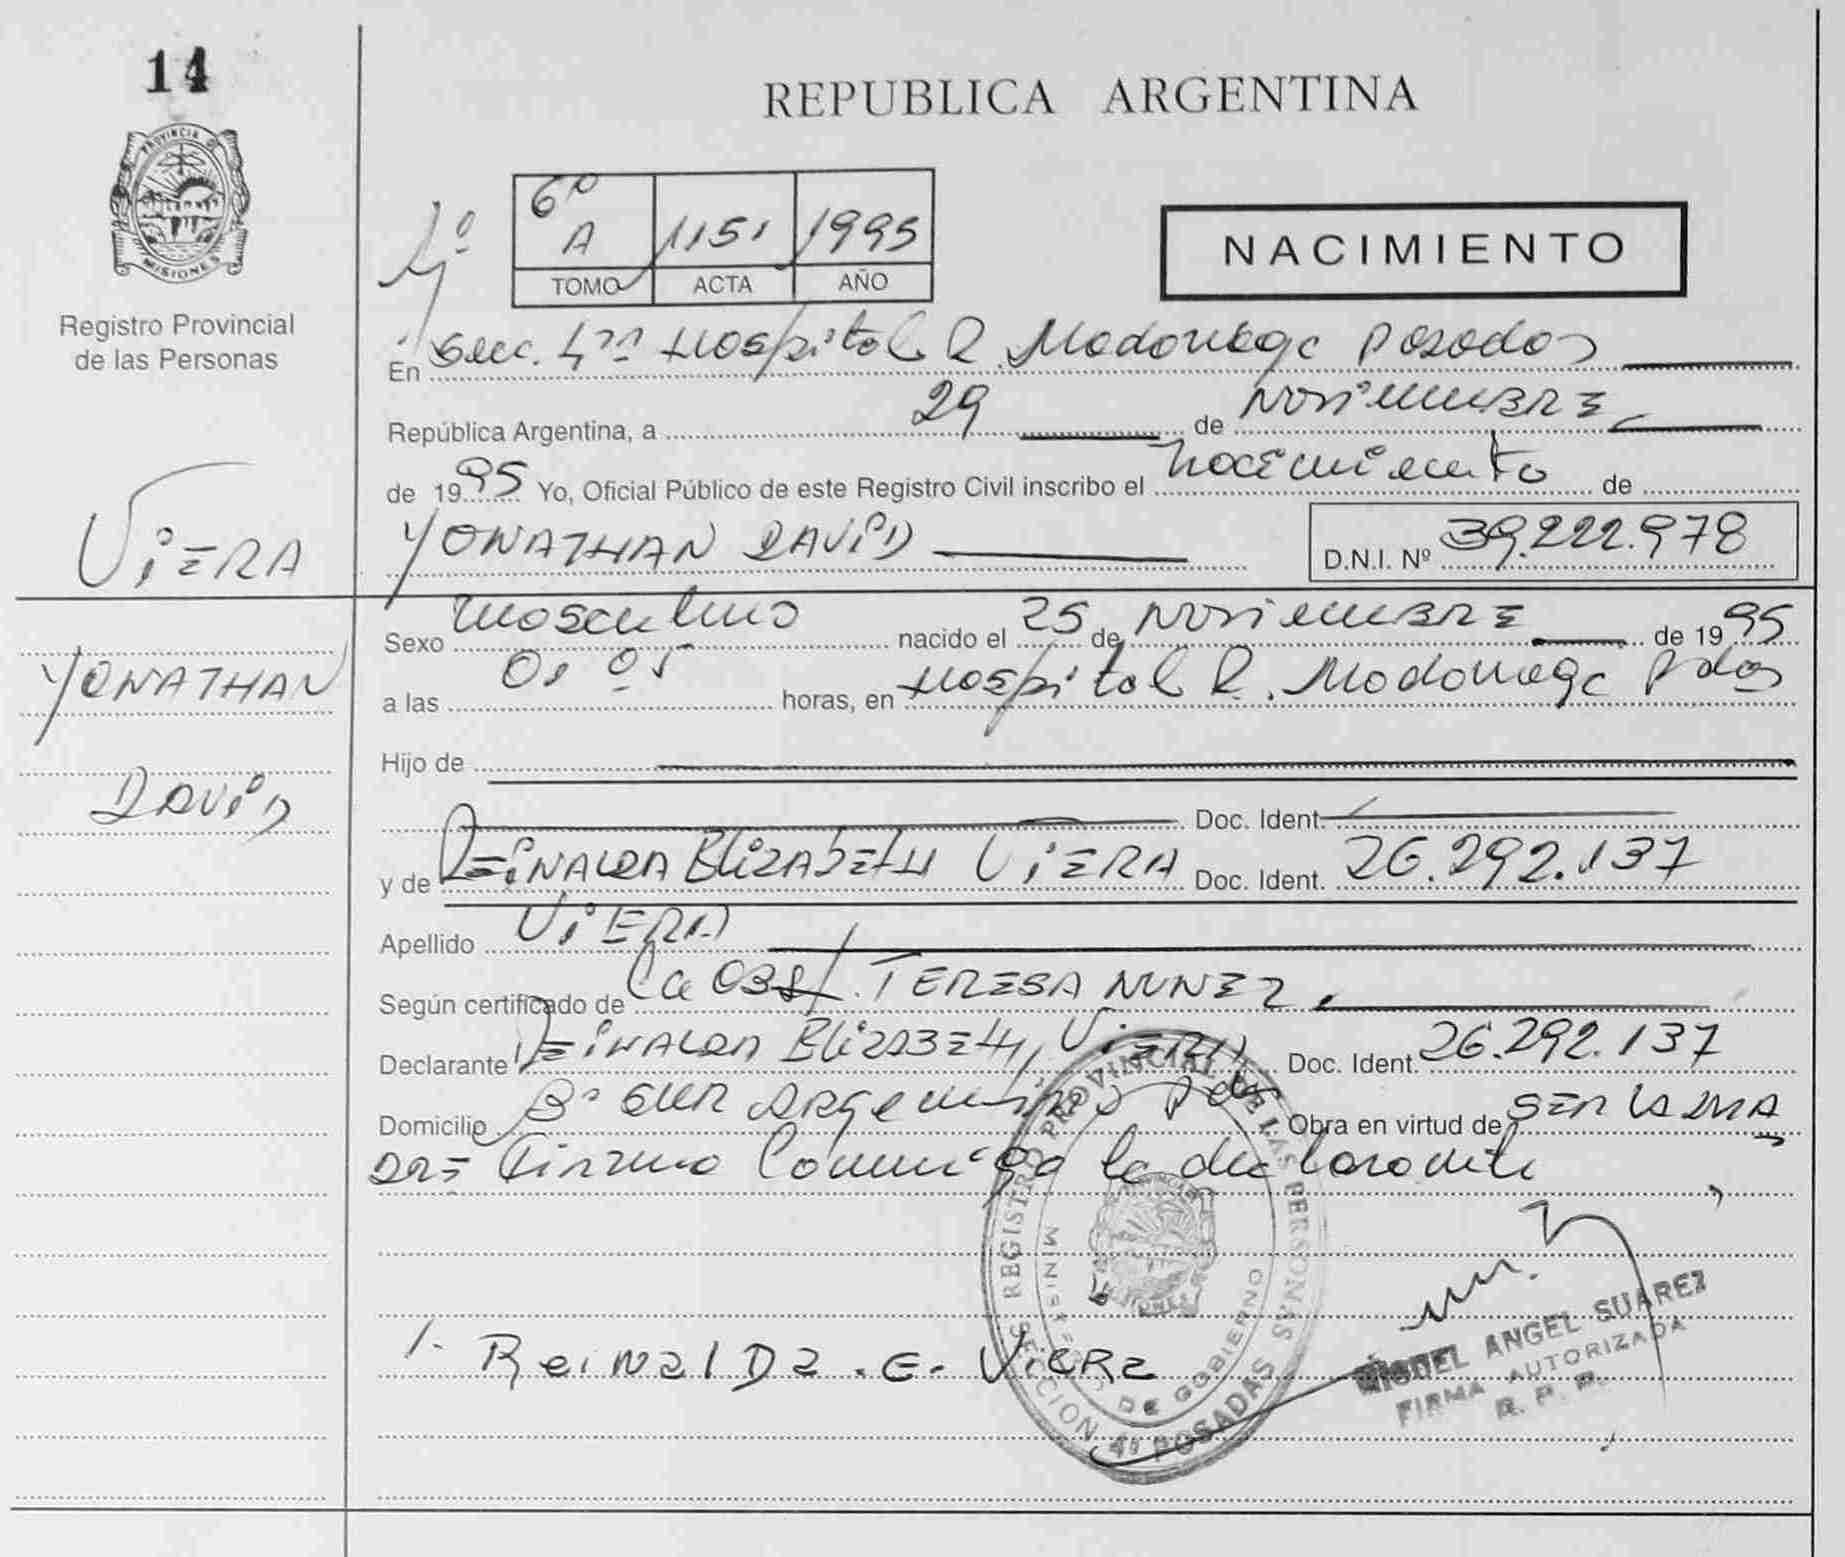 14
REPUBLICA ARGENTINA
PROVINCIA DE
MISIONES
Registro Provincial
de las Personas
4º
6º A 1151 1995
TOMO ACTA AÑO
NACIMIENTO
En Secc. 4ta Hospital R. Madariaga Posadas
República Argentina, a 29 de NOViEMBRE
de 1995 Yo, Oficial Público de este Registro Civil inscribo el Nacimiento de
YONATHAN DAViD D.N.I. Nº 39.222.978
ViERA
YONATHAN
DAViD
Sexo masculino nacido el 25 de NOViEMBRE de 1995
a las 01 05 horas, en Hospital R. Madariaga Pdas
Hijo de
Doc. Ident.
y de REiNALDA ELiZABETH ViERA Doc. Ident. 26.292.137
Apellido ViERA
Según certificado de la OBST. TERESA NUNEZ.
Declarante REiNALDA ELiZABETH ViERA Doc. Ident. 26.292.137
Domicilio Bº SUR Argentino Pdas Obra en virtud de SER LA MA
DRE Firma Conmigo la declarante
1. ReiNalDa. E. VieRa
REGISTRO PROVINCIAL DE LAS PERSONAS
MINISTERIO DE GOBIERNO
SECCION 4º POSADAS
MIGUEL ANGEL SUAREZ
FIRMA AUTORIZADA
R. P. P.